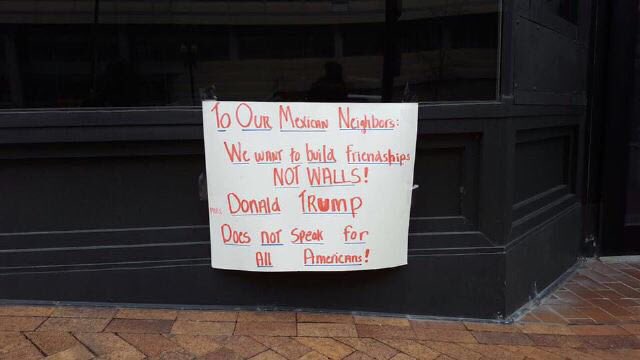 To Our Mexican Neighbors:
We want to build friendships
NOT WALLS!
Donald TRUMP
Does not speak for
All Americans!